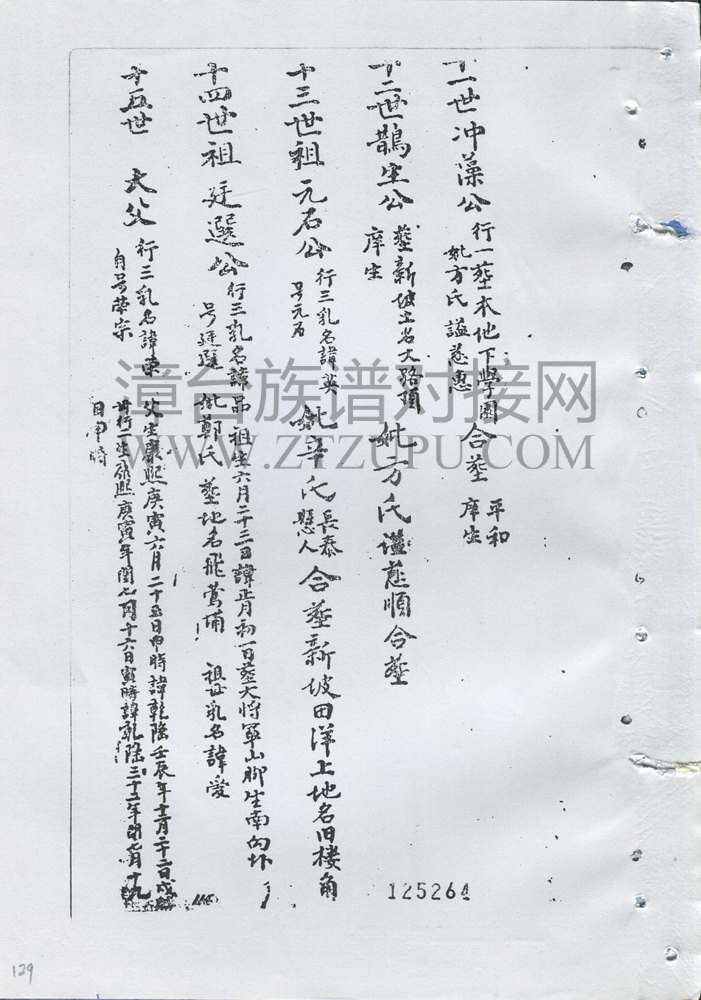 十一世冲藻公
行一葬本地下學園
妣方氏謚慈惠
合葬
平和
庠生
十二世鵲坐公
葬新坡土名大路頂
庠生
妣方氏謚慈順合葬
十三世祖元石公
行三乳名諱英
号元石
妣辛氏
長泰
懸人
合葬新坡田洋上地名旧楼角
十四世祖廷選公
行三乳名諱品
祖生六月二十三日諱正月初一日葬大将軍山脚生南向
号廷選
妣鄭氏
葬地名飛鶯埔
祖妣乳名諱愛
十五世
太父
行三乳名諱東
自号荣宗
父生康熙庚寅六月二十五日申時諱乾隆壬辰年十二月二十二日戌
行一生康熙庚寅年閏七月十六日寅時諱乾隆三十二年閏七月十九
日申時
漳台族谱对接网
WWW.ZTZUPU.COM
125264
129